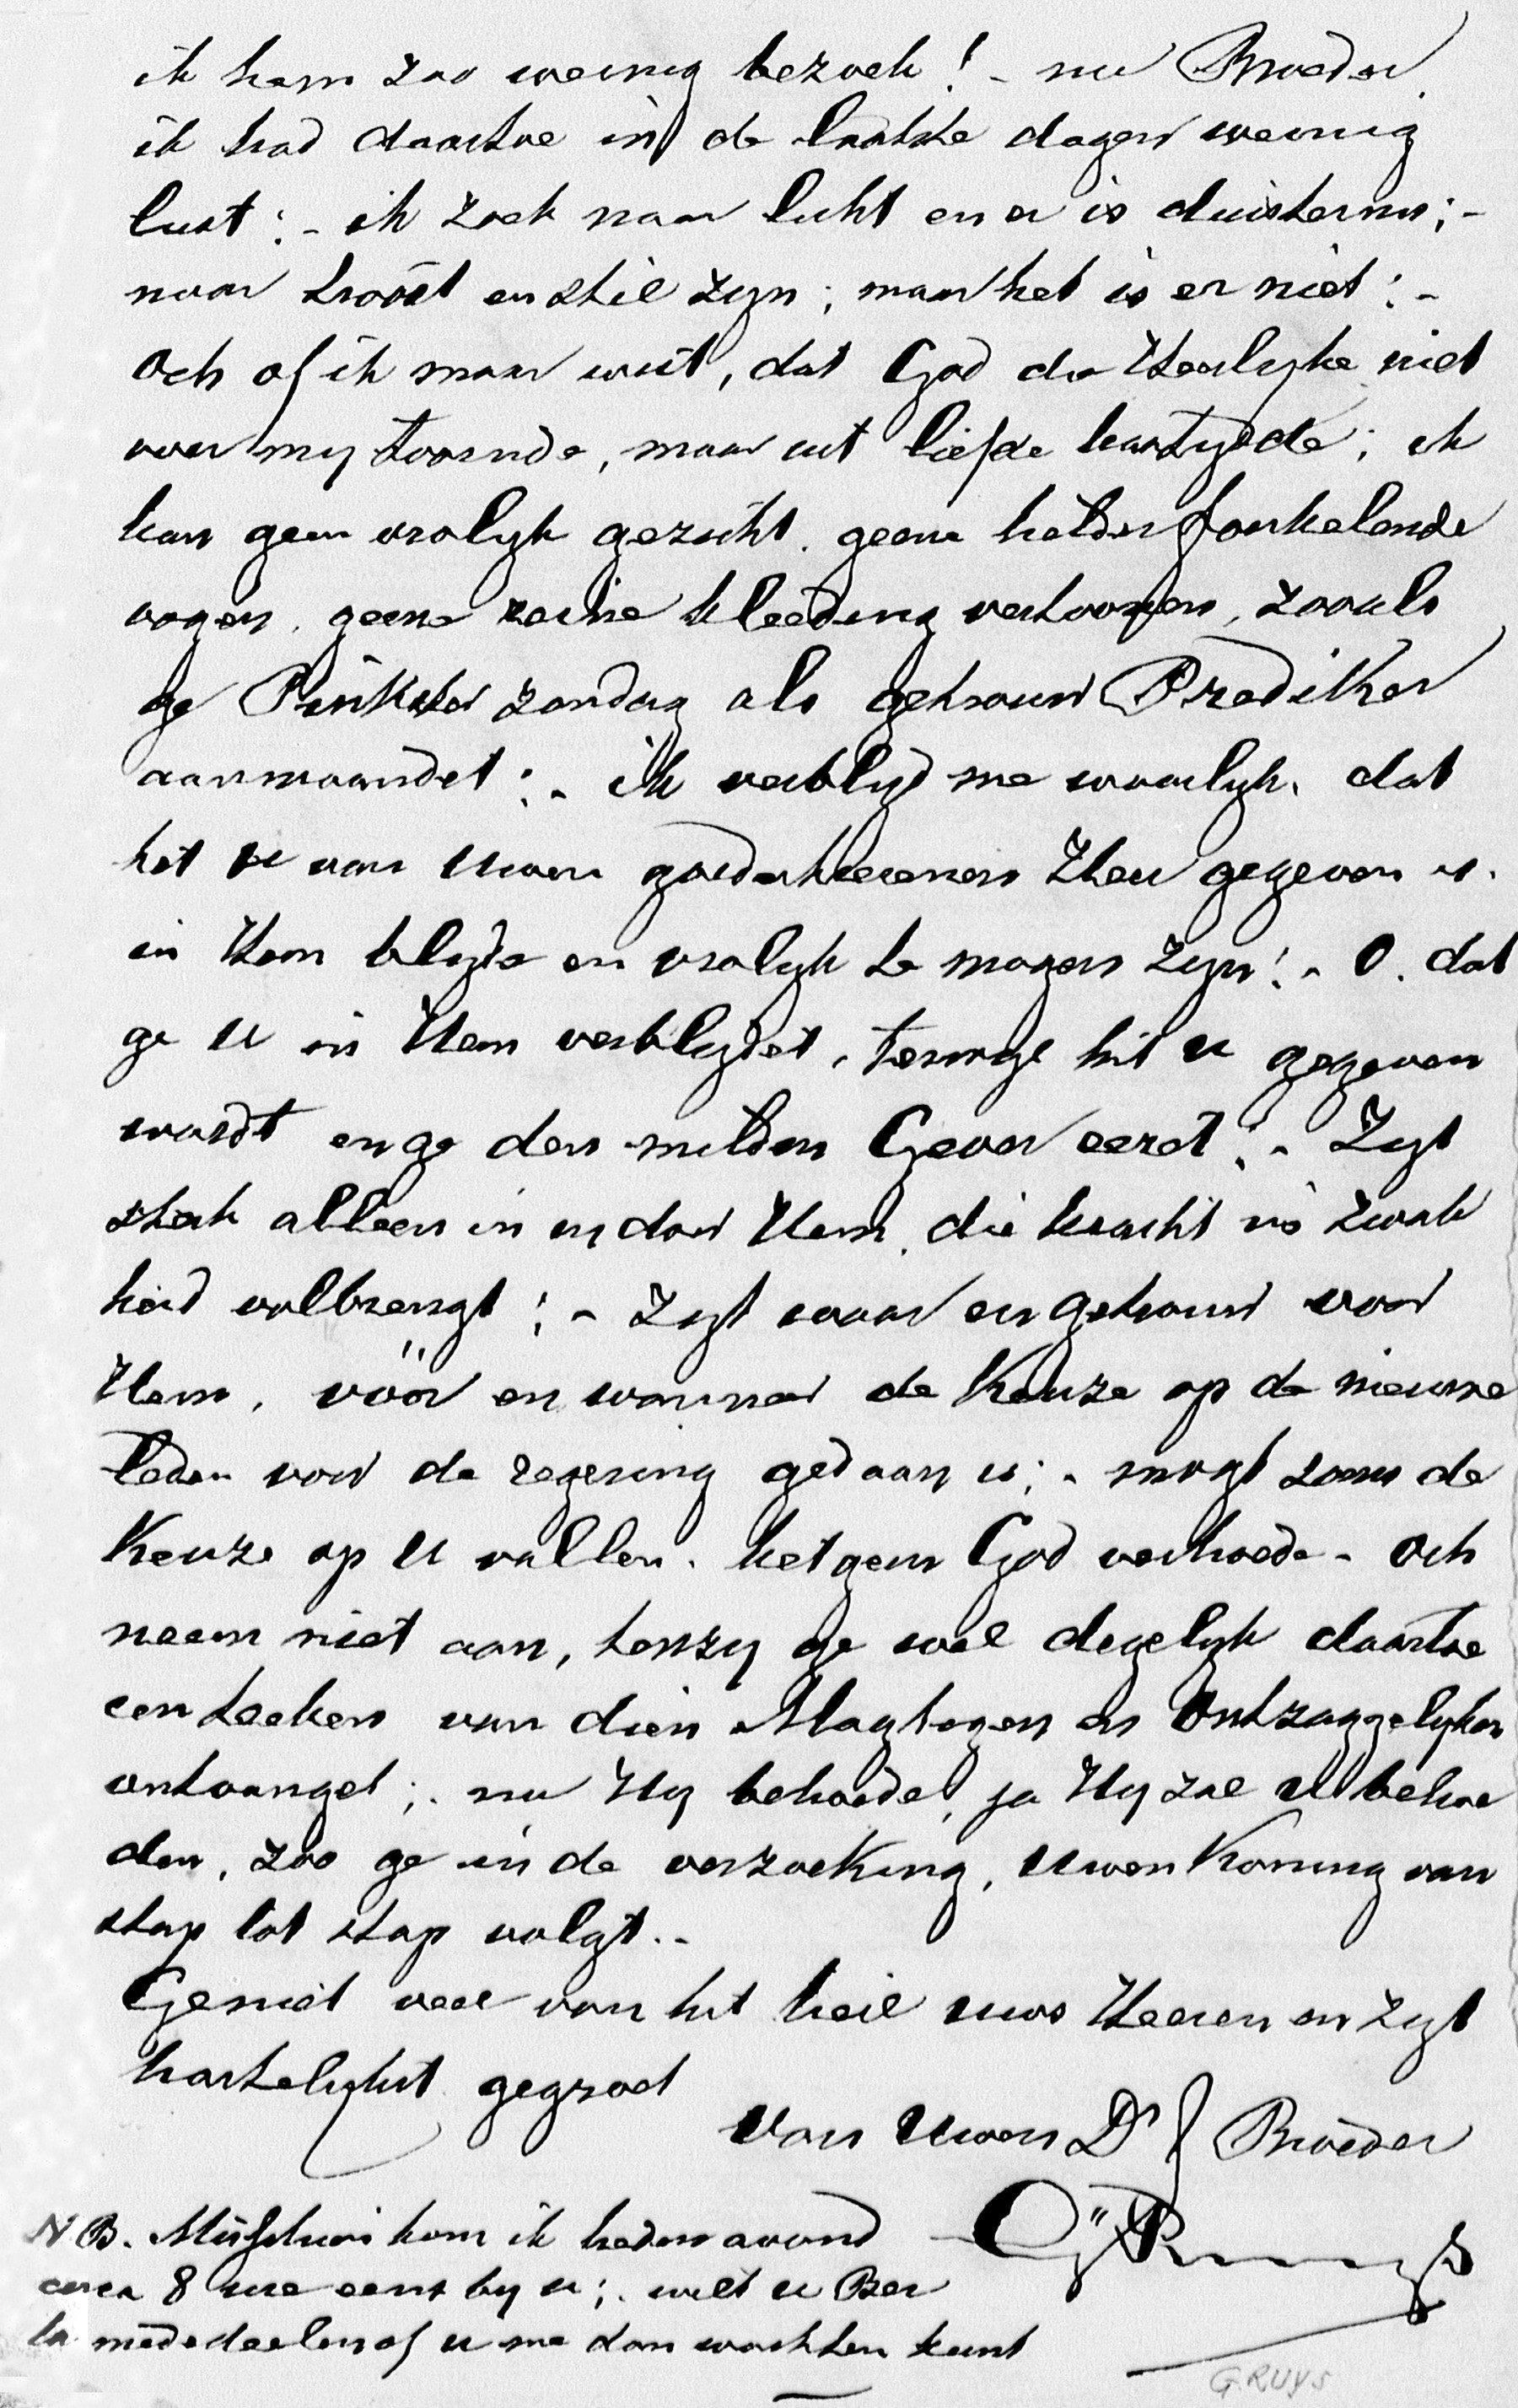 ik kom zoo weinig bezoek! - nu Broeder
ik had daartoe in de laatste dagen weinig
lust; - ik zoek naar licht en er is duisternis; -
naar troost en stil zyn; maar het is er niet; -
och of ik maar wist, dat God de Heerlyke niet
over my toornde, maar uit liefde kastydde; ik
kan geen vrolyk gezicht, geene helder fonkelende
oogen, geene reine kleeding vertoonen, zooals
ge Pinkster zondag als getrouw Prediker
aanmaandet; - ik verblyd me waarlyk, dat
het u van Uwen goedertierenen Heer gegeven is,
in Hem blyde en vrolyk te mogen zyn; - O, dat
ge U in Hem verblydet, terwyl het u gegeven
wordt en ge den milden Gever eeret; - Zyt
sterk alleen in en door Hem, die kracht in zwak
heid volbrengt; - Zyt waar en getrouw voor
Hem, vóór en wanneer de Keuze op de nieuwe
leden voor de regering gedaan is; - mogt soms de
Keuze op U vallen, hetgeen God verhoede - och
neem niet aan, tenzy ge wel degelyk daartoe
een teeken van dien Alagtogen en Ontzaggelyken
ontvanget; - nu Hy behoede, ja Hy zal U behoe
den, zoo ge in de verzoeking, Uwen Koning van
stap tot stap volgt. -
Geniet veel van het heil uws Heeren en zyt
hartelykst gegroet
van Uwen Dr f Broeder
G Ruys
N B. Misschien kom ik heden avond
circa 8 ure eens by u; - wilt u Ber
ta mededeelen of u me dan wachten kunt
G. RUYS